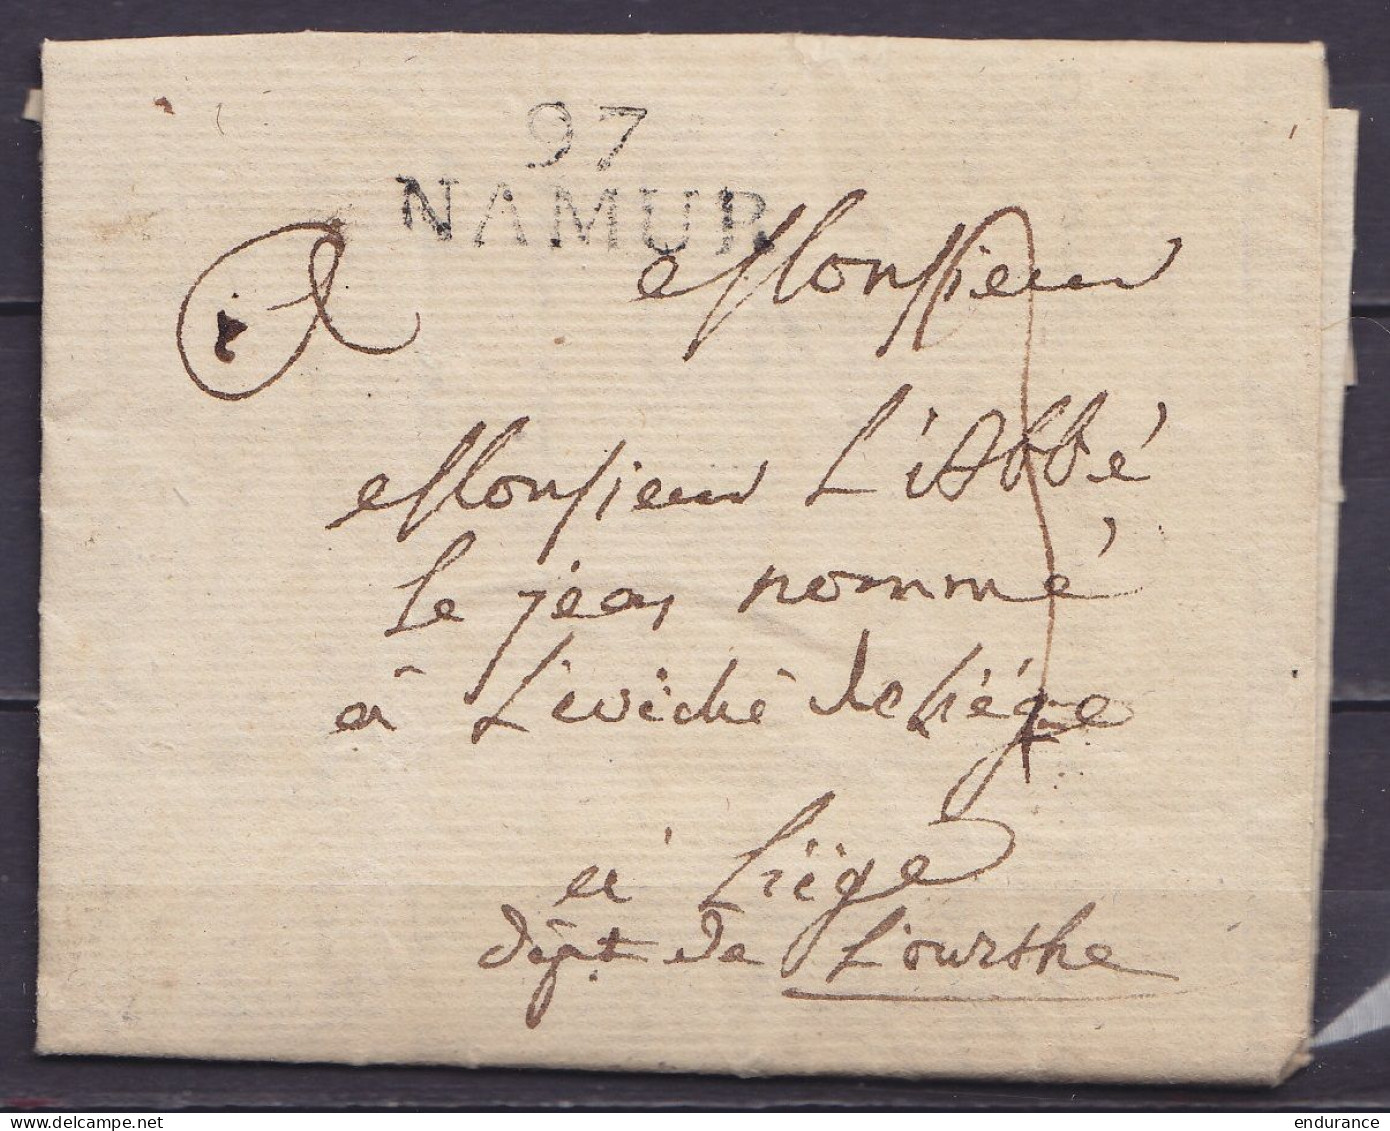 97
NAMUR
A Monsieur
Monsieur L'Abbé
le jeas nommé
à L'evéché de Liége
à Liége
dépt de L'ourthe
endurance
www.delcampe.net